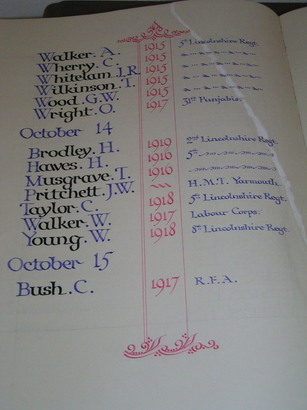 Walker. A. 1915 5th Lincolnshire Regt.
Wherry. C. 1915
Whitelam J.R. 1915
Wilkinson. T. 1915
Wood. G.W. 1915
Wright. O. 1917 31st Punjabis.
October 14
Brodley. H. 1919 2nd Lincolnshire Regt.
Hawes. H. 1916 5th
Musgrave. T. 1916
Pritchett. J.W. H.M.T. Yarmouth.
Taylor. C. 1918 5th Lincolnshire Regt.
Walker. W. 1917 Labour Corps.
Young. W. 1918 8th Lincolnshire Regt.
October 15
Bush. C. 1917 R.F.A.